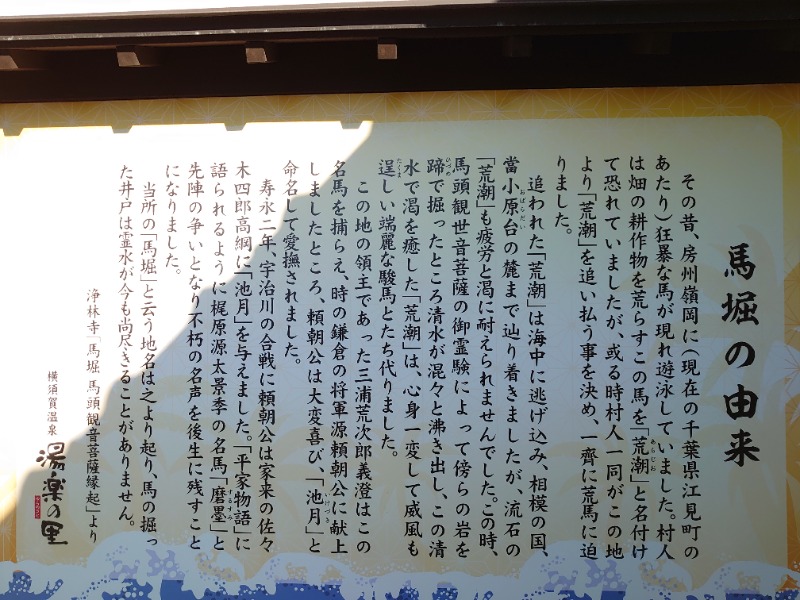 馬堀の由来
その昔、房州嶺岡に(現在の千葉県江見町の
あたり)狂暴な馬が現れ遊泳していました。村人
は畑の耕作物を荒らすこの馬を「荒潮」と名付け
て恐れていましたが、或る時村人一同がこの地
より「荒潮」を追い払う事を決め、一齊に荒馬に迫
りました。
追われた「荒潮」は海中に逃げ込み、相模の国、
當小原台の麓まで辿り着きましたが、流石の
「荒潮」も疲労と渇に耐えられませんでした。この時、
馬頭観世音菩薩の御霊験によって傍らの岩を
蹄で掘ったところ清水が滾々と沸き出し、この清
水で渇を癒した「荒潮」は、心身一変して威風も
逞しい端麗な駿馬とたち代りました。
この地の領主であった三浦荒次郎義澄はこの
名馬を捕らえ、時の鎌倉の将軍源頼朝公に献上
しましたところ、頼朝公は大変喜び、「池月」と
命名して愛撫されました。
寿永二年、宇治川の合戦に頼朝公は家来の佐々
木四郎高綱に「池月」を与えました。「平家物語」に
語られるように梶原源太景季の名馬「磨墨」と
先陣の争いとなり不朽の名声を後生に残すこと
になりました。
当所の「馬堀」と云う地名は之より起り、馬の掘っ
た井戸は霊水が今も尚尽きることがありません。
浄林寺「馬堀 馬頭観音菩薩縁起」より
横須賀温泉
湯楽の里